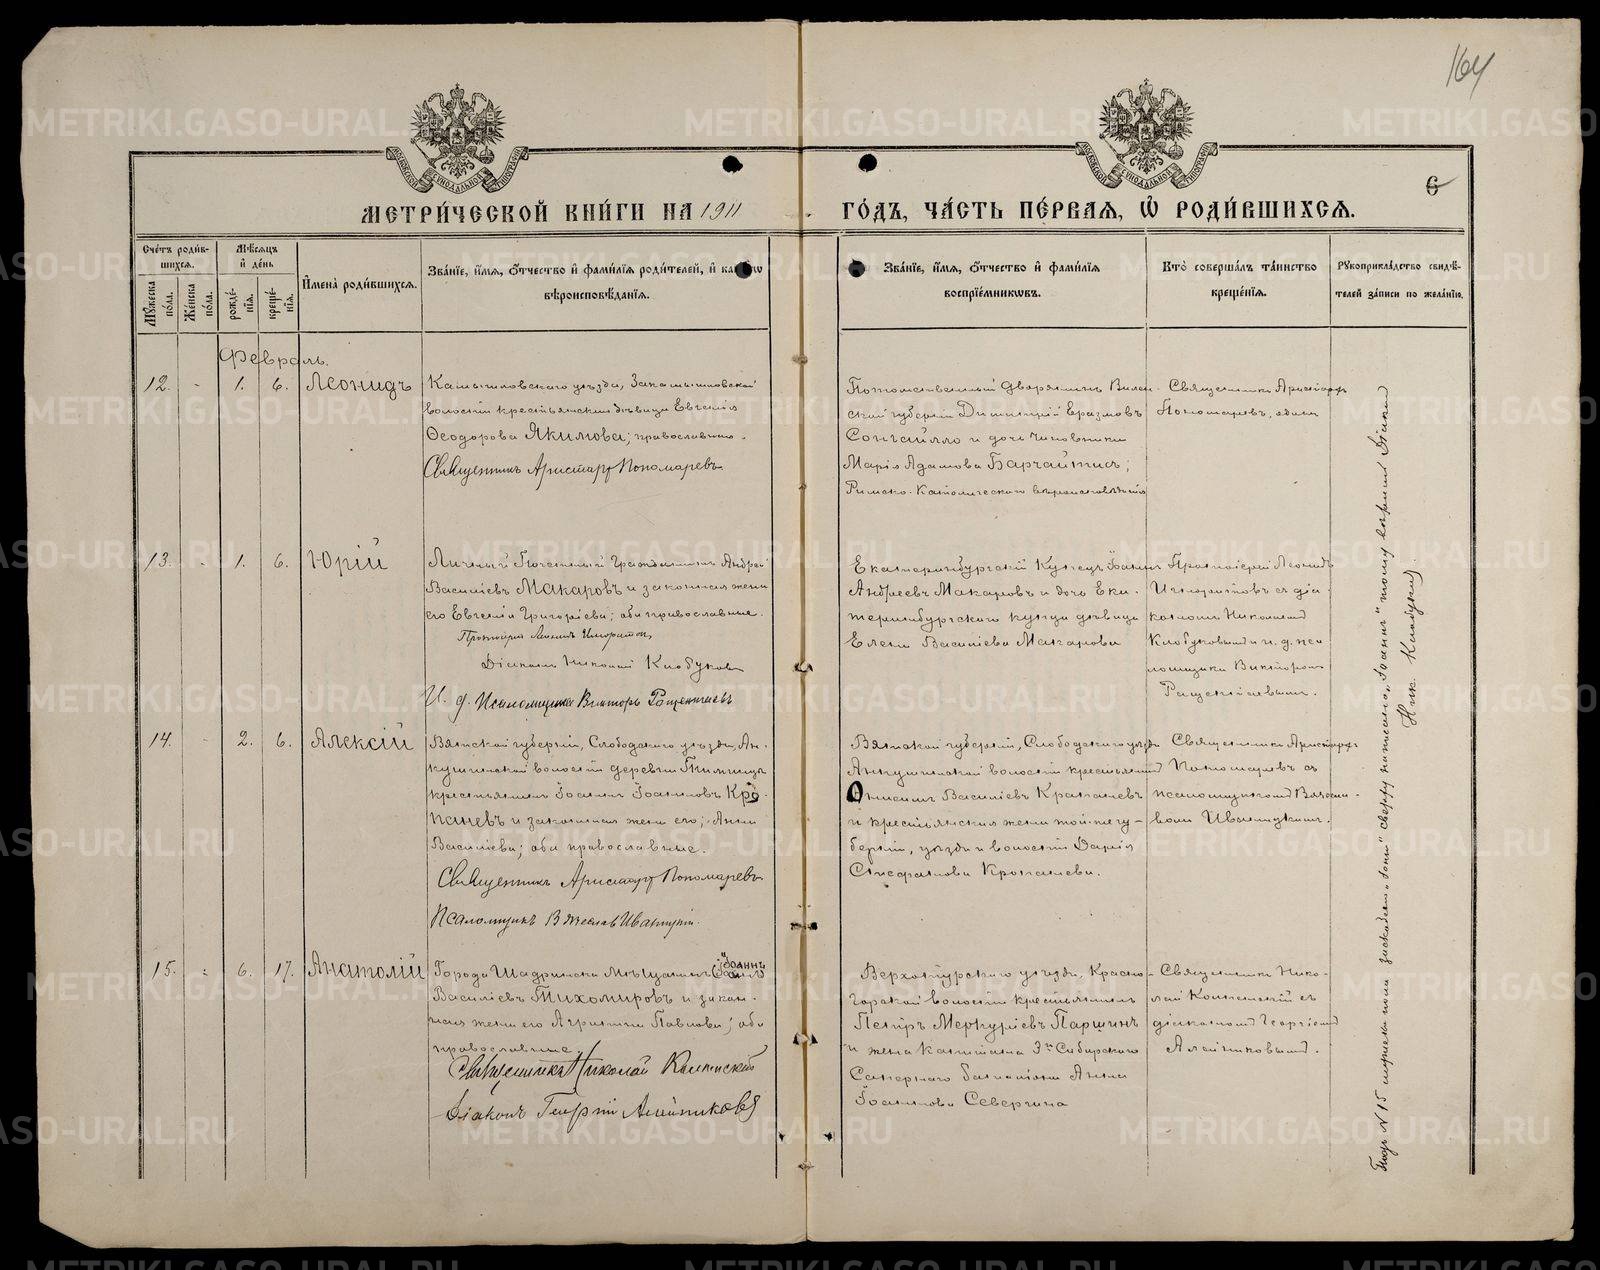 164
МОСКОВСКОЙ СѴНОДАЛЬНОЙ ТИПОГРАФІИ
МОСКОВСКОЙ СѴНОДАЛЬНОЙ ТИПОГРАФІИ
6
МЕТРИ́ЧЕСКОЙ КНИ́ГИ НА 1911
ГО́ДЪ, ЧА́СТЬ ПЕ́РВАЯ, Ѡ РОДИ́ВШИХСЯ.
Сче́тъ роди́в-
шихся.
Мѣ́сяцъ
и҆ де́нь
Мꙋ́жеска по́ла.
Же́нска по́ла.
рожде́-
нїя.
креще́-
нїя.
И҆мена̀ роди́вшихся.
Зва́нїе, и҆́мя, ѻ҆́тчество и҆ фами́лїя роди́телей, и҆ како́гѡ
вѣроисповѣ́данїя.
Зва́нїе, и҆́мя, ѻ҆́тчество и҆ фами́лїя
воспрїе́мникѡвъ.
Кто̀ соверша́лъ та́инство
креще́нїя.
Рꙋкоприкла́дство свидѣ́-
телей за́писи по жела́нїю.
Февраль.
12. - 1. 6. Леонидъ
Камышловскаго уѣзда, Закамышловской
волости крестьянская дѣвица Евгенія
Ѳеодорова Якимова; православнаго.
Священникъ Аристархъ Пономаревъ
Потомственный дворянинъ Вилен-
ской губерніи Димитрій Еразмовъ
Сонгайлло и дочь чиновника
Марія Адамова Барчайтисъ;
Римско-Католическаго вѣроисповѣданія
Священникъ Аристархъ
Пономаревъ, одинъ
13. - 1. 6. Юрій
Личный Почетный Гражданинъ Андрей
Василіевъ Макаровъ и законная жена
его Евгенія Григоріева; оба православные.
Протоіерей Леонидъ Игноратовъ
Діаконъ Николай Клобуковъ
И. д. Псаломщика Викторъ Ращектаевъ
Екатеринбургскій Купецъ Іоаннъ
Андреевъ Макаровъ и дочь Ека-
теринбургскаго купца дѣвица
Елена Василіева Макарова
Протоіерей Леонидъ
Игноратовъ съ діа-
кономъ Николаемъ
Клобуковымъ и и. д. пса-
ломщика Викторомъ
Ращектаевымъ.
14. - 2. 6. Алексій
Вятской губерніи, Слободского уѣзда, Ан-
кушинской волости деревни
крестьянинъ Іоаннъ Іоанновъ Кро-
пачевъ и законная жена его; Анна
Василіева; оба православные.
Священникъ Аристархъ Пономаревъ
Псаломщикъ Вячеславъ Иваницкій.
Вятской губерніи, Слободского уѣзда
Анкушинской волости крестьянинъ
Онисимъ Василіевъ Кропачевъ
и крестьянская жена той-же гу-
берніи, уѣзда и волости Дарія
Стефанова Кропачева.
Священникъ Аристархъ
Пономаревъ съ
псаломщикомъ Вячесла-
вомъ Иваницкимъ.
15. - 6. 17. Анатолій
Іоаннъ
Города Шадринска Мѣщанинъ
Василіевъ Тихомировъ и закон-
ная жена его Агрипина Павлова; оба
православные.
Священникъ Николай
Діаконъ Георгій Алейниковъ
Верхотурскаго уѣзда, Красно-
горской волости крестьянинъ
Петръ Меркуріевъ Паршинъ
и жена Капитана 3го Сибирскаго
Сапернаго баталіона Анна
Іоаннова Севергина
Священникъ Нико-
лай съ
діакономъ Георгіемъ
Алейниковымъ.
Подъ N 15 мужска пола
"Іоаннъ"
Діаконъ
Ник. Клобуковъ
METRIKI.GASO-URAL.RU